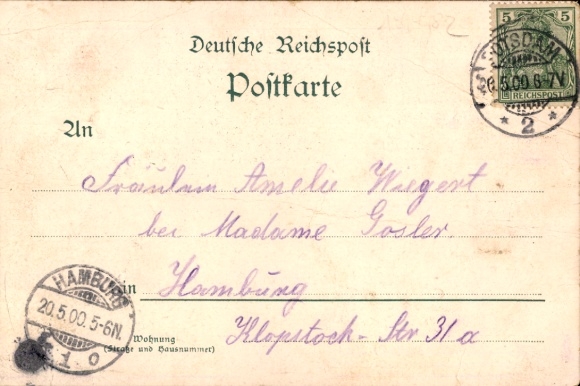 5
REICHSPOST
POTSDAM
20.5.00.6-7V.
* 2 *
Deutsche Reichspost
Postkarte
An
Fräulein Amelie Wiegert
bei Madame Gosler
in Hamburg
Klopstock-Str 31a
Wohnung
(Straße und Hausnummer)
HAMBURG
20.5.00.5-6N.
1 0